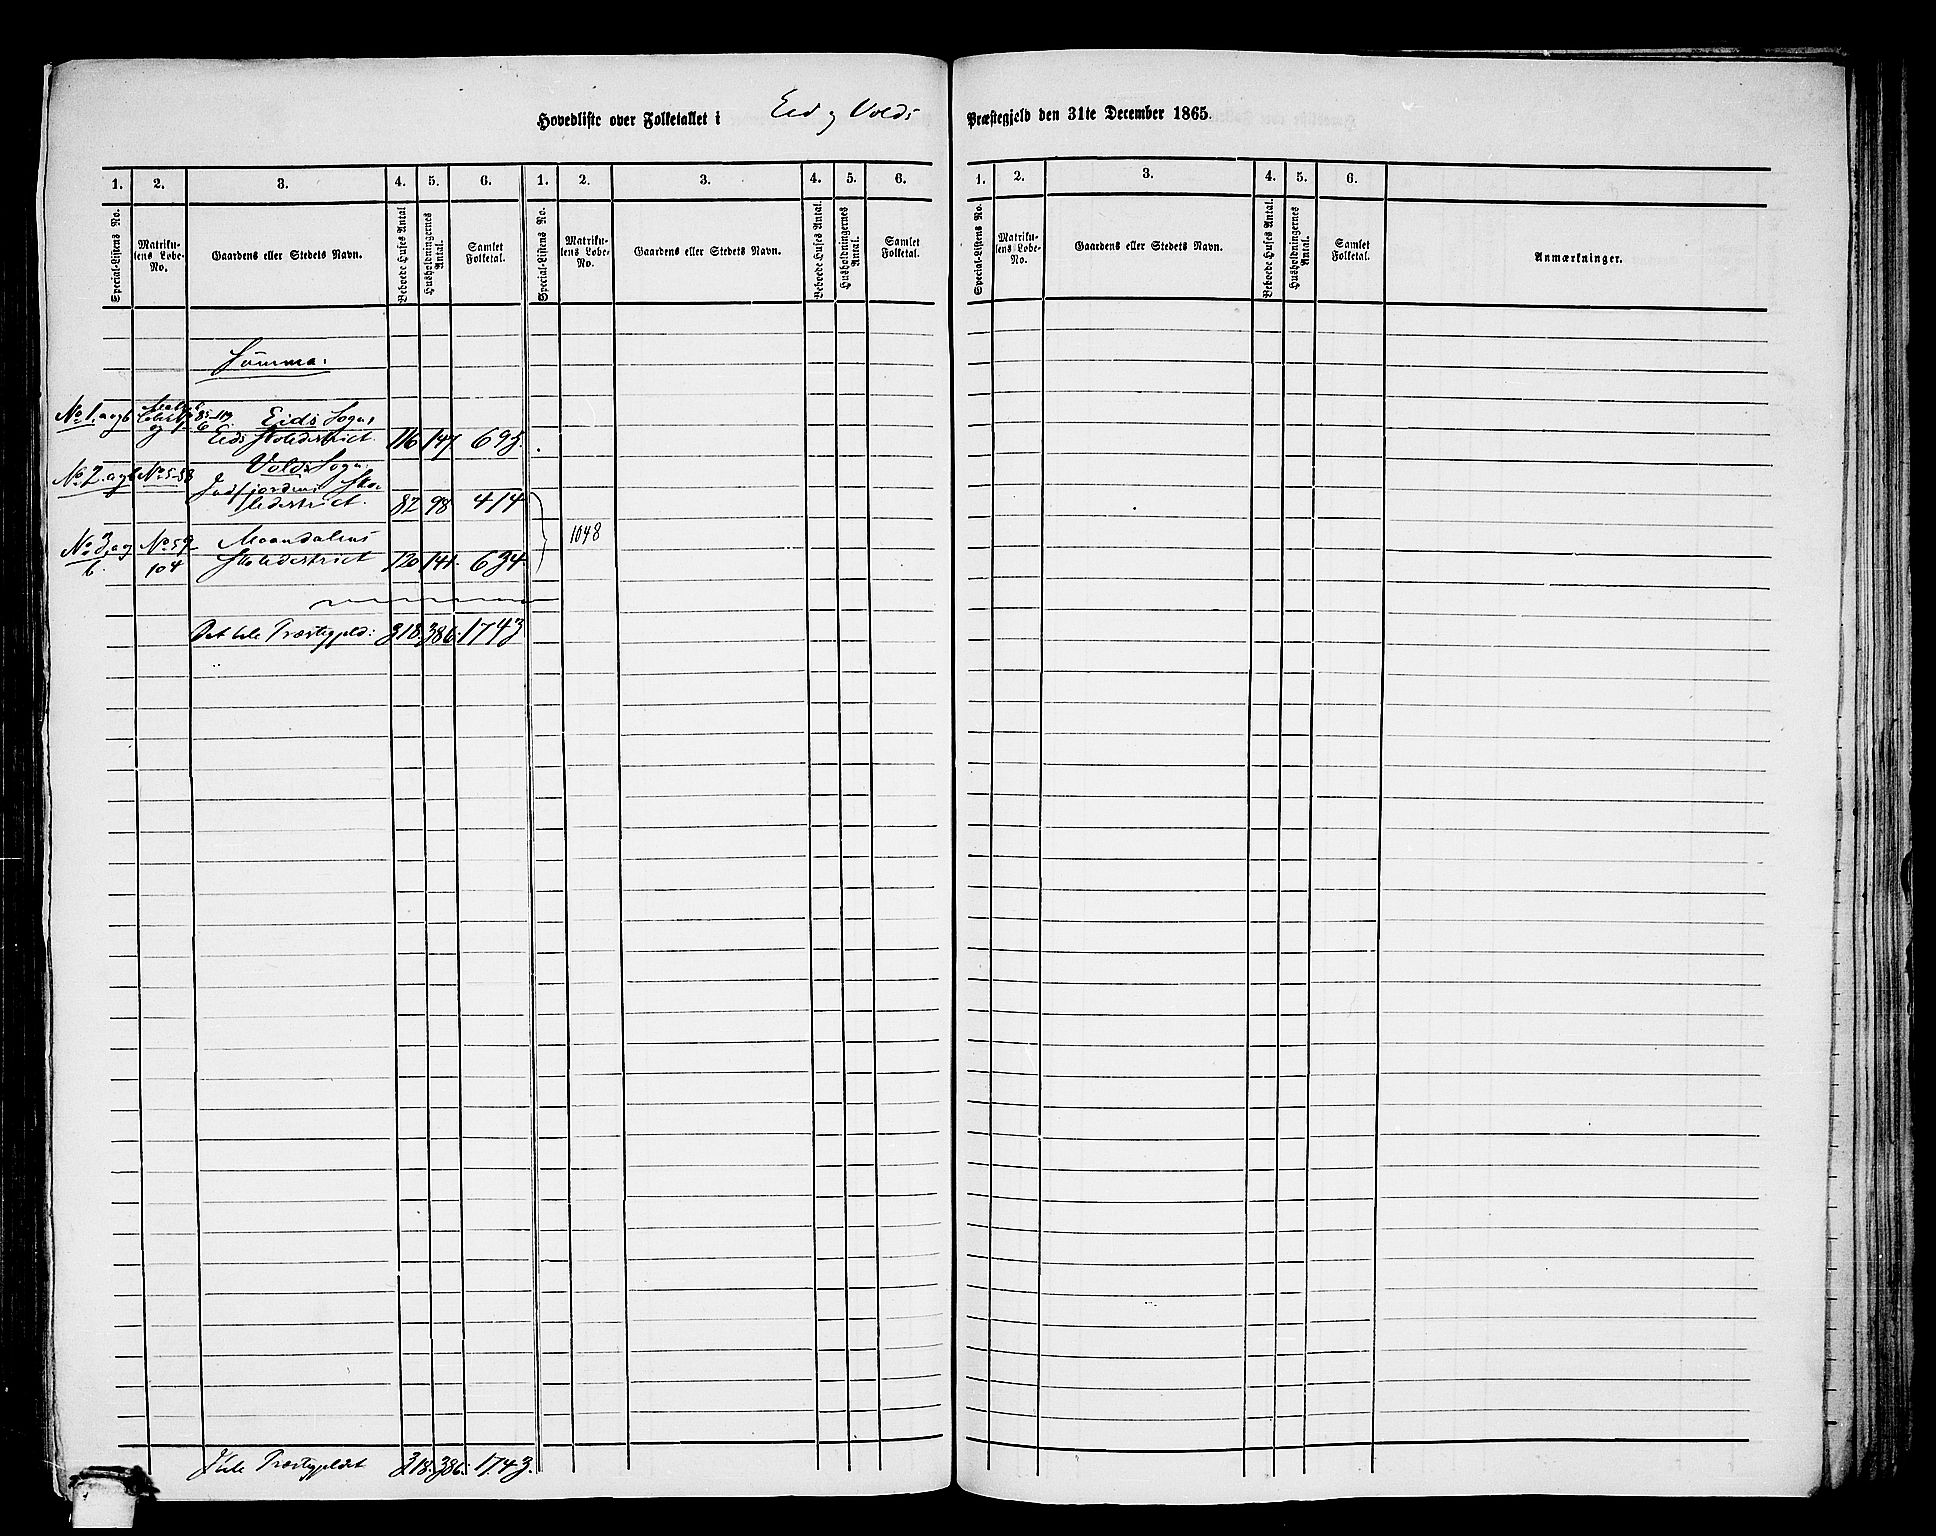 Hovedliste over Folketallet i Eid og Volds Præstegjeld den 31te December 1865.
1. 2. 3. 4. 5. 6. 1. 2. 3. 4. 5. 6. 1. 2. 3. 4. 5. 6.
Special-Listens No. Matrikulens Løbe-No. Gaardens eller Stedets Navn. Beboede Huses Antal. Husholdningernes Antal. Samlet Folketal.
Special-Listens No. Matrikulens Løbe-No. Gaardens eller Stedets Navn. Beboede Huses Antal. Husholdningernes Antal. Samlet Folketal.
Special-Listens No. Matrikulens Løbe-No. Gaardens eller Stedets Navn. Beboede Huses Antal. Husholdningernes Antal. Samlet Folketal. Anmærkninger.
Summa:
No 1. a og b 85-119 Eids Sogn:
og 1-6 Eids Skoledistrict. 116 147 695.
No 2. a og b No 5-58 Volds Sogn:
Indfjordens Sko-
ledistrict. 82 98 414
No 3, a og No 59- Maandalens
b. 104 Skoledistrict 120 141. 634. 1048
Det hele Præstegjeld: 318. 386. 1743
I hele Præstegjeldet 318. 386. 1743.